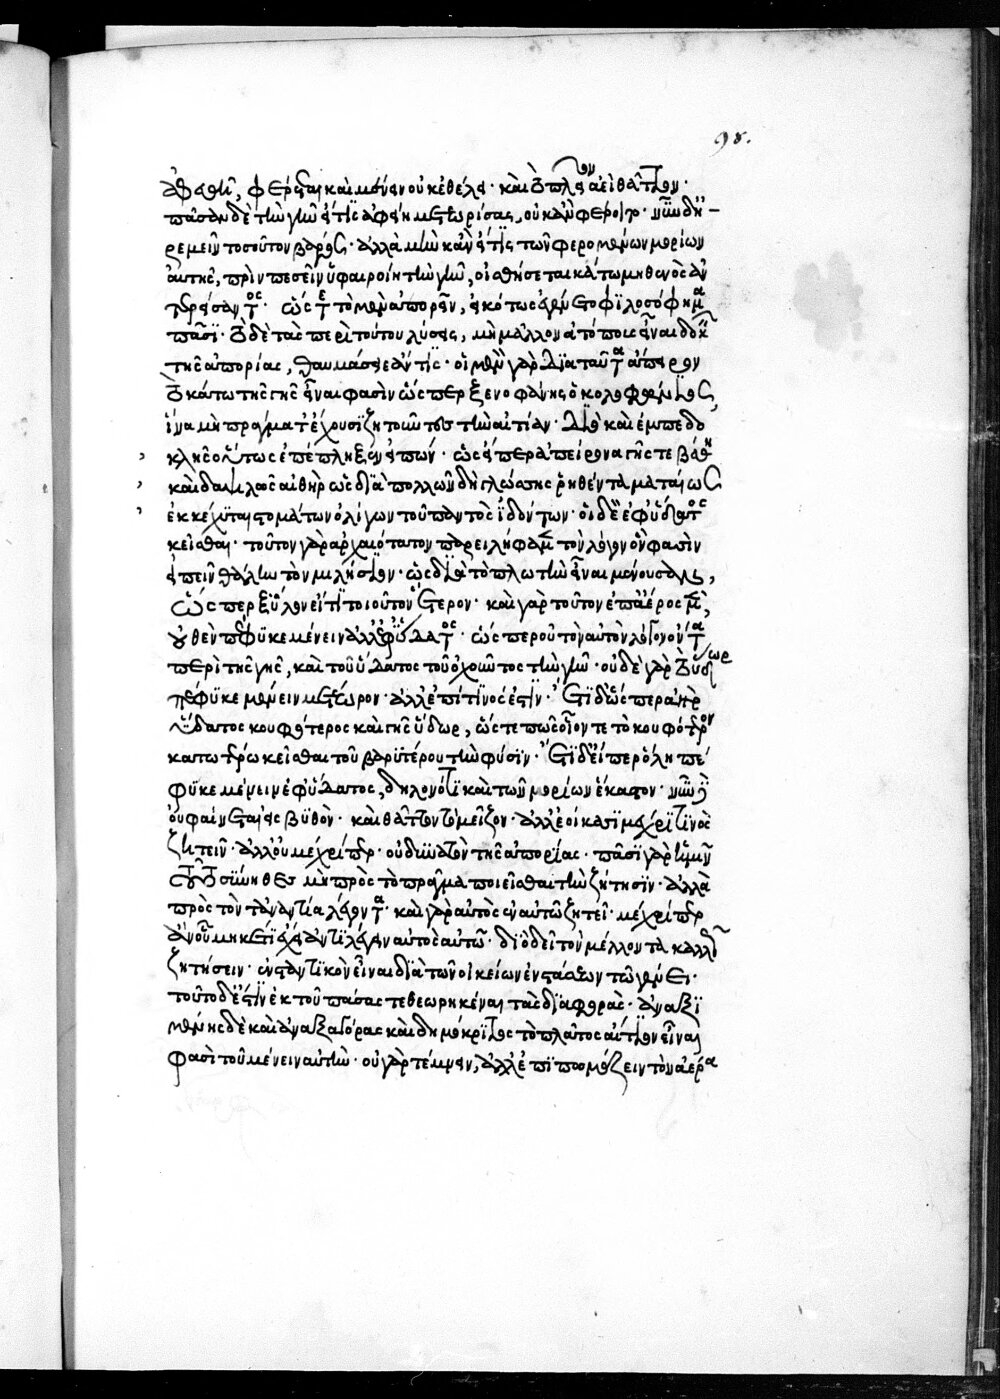 ἀφεθῆ, φέρεσθαι καὶ μένειν οὐκ ἐθέλει· καὶ τὸ πλεῖον ἀεὶ θᾶττον·
πᾶσαν δὲ τὴν γῆν εἴ τις ἀφείη μετεωρίσας, οὐκ ἂν φέροιτο· νῦν δ' ἠ-
ρεμεῖ τοσοῦτον βάρος· ἀλλὰ μὴν κἂν εἴ τις τῶν φερομένων μορίων
αὐτῆς, πρὶν πεσεῖν ὑφαιροίη τὴν γῆν, οἰσθήσεται κάτω μηθενὸς ἀν
τερείσαντος· ὥστε τὸ μὲν ἀπορεῖν, εἰκότως ἐγένετο φιλοσόφημα
πᾶσι· τὸ δὲ τὰς περὶ τούτου λύσεις, μὴ μᾶλλον ἀτόπους εἶναι δοκεῖν
τῆς ἀπορίας, θαυμάσειεν ἄν τις· οἱ μὲν γὰρ διὰ ταῦτα ἄπειρον
τὸ κάτω τῆς γῆς εἶναι φασὶν ὥσπερ ξενοφάνης ὁ κολοφώνιος,
ἵνα μὴ πράγματ' ἔχωσι ζητοῦντες τὴν αἰτίαν· διὸ καὶ ἐμπεδο
κλῆς οὕτως ἐπέπληξεν εἰπών· ὡς εἴπερ ἀπείρονα γῆς τε βάθη
καὶ δαψιλὸς αἰθὴρ ὡς διὰ πολλῶν δὴ γλώσσης ῥηθέντα ματαίως
ἐκκέχυται στομάτων ὀλίγον τοῦ παντὸς ἰδόντων· οἱ δὲ ἐφ' ὕδατος
κεῖσθαι· τοῦτον γὰρ ἀρχαιότατον παρειλήφαμεν τὸν λόγον ὃν φασὶν
εἰπεῖν θάλην τὸν μιλήσιον· ὡς διὰ τὸ πλωτὴν εἶναι μένουσαν,
ὥσπερ ξύλον εἴ τι τοιοῦτον ἕτερον· καὶ γὰρ τοῦτον ἐπ' ἀέρος μὲν,
οὐθὲν πέφυκε μένειν ἀλλ' ἐφ' ὕδατος· ὥσπερ οὐ τὸν αὐτὸν λόγον ὄντα
περὶ τῆς γῆς, καὶ τοῦ ὕδατος τοῦ ὀχοῦντος τὴν γῆν· οὐδὲ γὰρ τὸ ὕδωρ
πέφυκε μένειν μετέωρον· ἀλλ' ἐπί τινος ἐστίν· ἔτι δ' ὥσπερ ἀὴρ
ὕδατος κουφότερος καὶ γῆς ὕδωρ, ὥστε πῶς οἷόν τε τὸ κουφότερον
κατωτέρω κεῖσθαι τοῦ βαρυτέρου τὴν φύσιν· ἔτι δ' εἴπερ ὅλη πέ
φυκε μένειν ἐφ' ὕδατος, δηλονότι καὶ τῶν μορίων ἕκαστον· νῦν δ'
οὐ φαίνεται εἰς βυθὸν· καὶ θᾶττον τὸ μεῖζον· ἀλλ' ἐοίκασι μέχρι τινὸς
ζητεῖν· ἀλλ' οὐ μέχρι περ· οὗ δυνατὸν τῆς ἀπορίας· πᾶσι γὰρ ἡμῖν
τοῦτο σύνηθες μὴ πρὸς τὸ πρᾶγμα ποιεῖσθαι τὴν ζήτησιν· ἀλλὰ
πρὸς τὸν τἀναντία λέγοντα· καὶ γὰρ αὐτὸς ἐν αὑτῶ ζητεῖ· μέχρι περ
ἂν οὗ μηκέτι ἔχη ἀντιλέγειν αὐτὸς αὑτῶ· διὸ δεῖ τὸν μέλλοντα καλῶς
ζητήσειν· ἐνστατικὸν εἶναι διὰ τῶν οἰκείων ἐνστάσεων τῶ γένει·
τοῦτο δ' ἐστὶν ἐκ τοῦ πάσας τεθεωρηκέναι τὰς διαφοράς· ἀναξι
μένης δὲ καὶ ἀναξαγόρας καὶ δημόκριτος τὸ πλάτος αἴτιον εἶναι
φασὶ τοῦ μένειν αὐτὴν· οὐ γὰρ τέμνειν, ἀλλ' ἐπιπωμάζειν τὸν ἀέρα